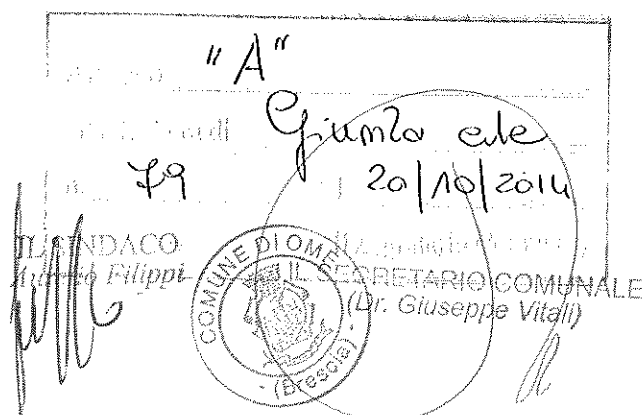 "A"
Giunta c.le
79 20/10/2014
IL SINDACO
Aurelio Filippi
IL SEGRETARIO COMUNALE
(Dr. Giuseppe Vitali)
COMUNE DI OME
- (Brescia) -